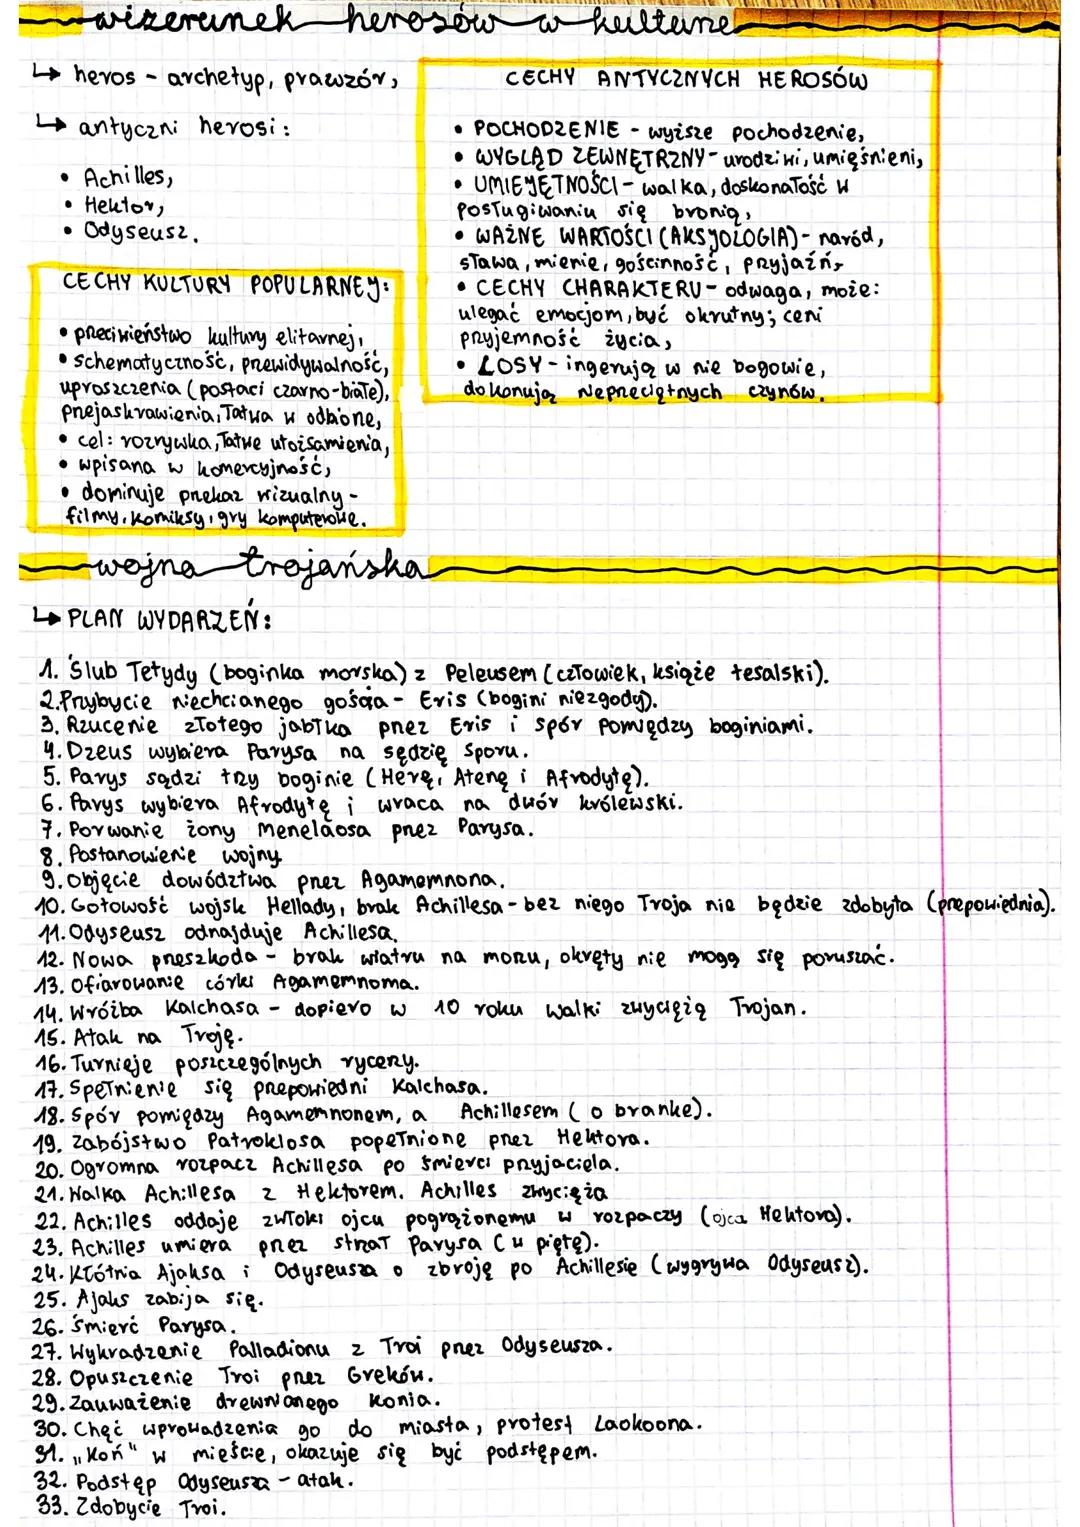 wizerunek herosów w kulturze
↳ heros - archetyp, prawzór,
↳ antyczni herosi:
• Achilles,
• Hektor,
• Odyseusz.
CECHY KULTURY POPULARNEJ:
• przeciwieństwo kultury elitarnej,
• schematyczność, przewidywalność,
uproszczenia (postaci czarno-białe),
przejaskrawienia, łatwa w odbiorze,
• cel: rozrywka, łatwe utożsamienia,
• wpisana w komercyjność,
• dominuje przekaz wizualny -
filmy, komiksy, gry komputerowe.
CECHY ANTYCZNYCH HEROSÓW
• POCHODZENIE - wyższe pochodzenie,
• WYGLĄD ZEWNĘTRZNY - urodziwi, umięśnieni,
• UMIEJĘTNOŚCI - walka, doskonałość w
posługiwaniu się bronią,
• WAŻNE WARTOŚCI (AKSJOLOGIA) - naród,
sława, mienie, gościnność, przyjaźń,
• CECHY CHARAKTERU - odwaga, może:
ulegać emocjom, być okrutny; ceni
przyjemność życia,
• LOSY - ingerują w nie bogowie,
dokonują nieprzeciętnych czynów.
wojna trojańska
↳ PLAN WYDARZEŃ:
1. Ślub Tetydy (boginka morska) z Peleusem (człowiek, książe tesalski).
2. Przybycie niechcianego gościa - Eris (bogini niezgody).
3. Rzucenie złotego jabłka przez Eris i spór pomiędzy boginiami.
4. Dzeus wybiera Parysa na sędzię sporu.
5. Parys sądzi trzy boginie (Herę, Atenę i Afrodytę).
6. Parys wybiera Afrodytę i wraca na dwór królewski.
7. Porwanie żony Menelaosa przez Parysa.
8. Postanowienie wojny
9. Objęcie dowództwa przez Agamemnona.
10. Gotowość wojsk Hellady, brak Achillesa - bez niego Troja nie będzie zdobyta (przepowiednia).
11. Odyseusz odnajduje Achillesa.
12. Nowa przeszkoda - brak wiatru na morzu, okręty nie mogą się poruszać.
13. Ofiarowanie córki Agamemnoma.
14. Wróżba Kalchasa - dopiero w 10 roku walki zwyciężą Trojan.
15. Atak na Troję.
16. Turnieje poszczególnych rycerzy.
17. Spełnienie się przepowiedni Kalchasa.
18. Spór pomiędzy Agamemnonem, a Achillesem (o branke).
19. Zabójstwo Patroklosa popełnione przez Hektora.
20. Ogromna rozpacz Achillesa po śmierci przyjaciela.
21. Walka Achillesa z Hektorem. Achilles zwycięża
22. Achilles oddaje zwłoki ojcu pogrążonemu w rozpaczy (ojca Hektora).
23. Achilles umiera przez strzał Parysa (w piętę).
24. Kłótnia Ajaksa i Odyseusza o zbroję po Achillesie (wygrywa Odyseusz).
25. Ajaks zabija się.
26. Śmierć Parysa.
27. Wykradzenie Palladionu z Troi przez Odyseusza.
28. Opuszczenie Troi przez Greków.
29. Zauważenie drewnianego konia.
30. Chęć wprowadzenia go do miasta, protest Laokoona.
31. „Koń" w mieście, okazuje się być podstępem.
32. Podstęp Odyseusza - atak.
33. Zdobycie Troi.